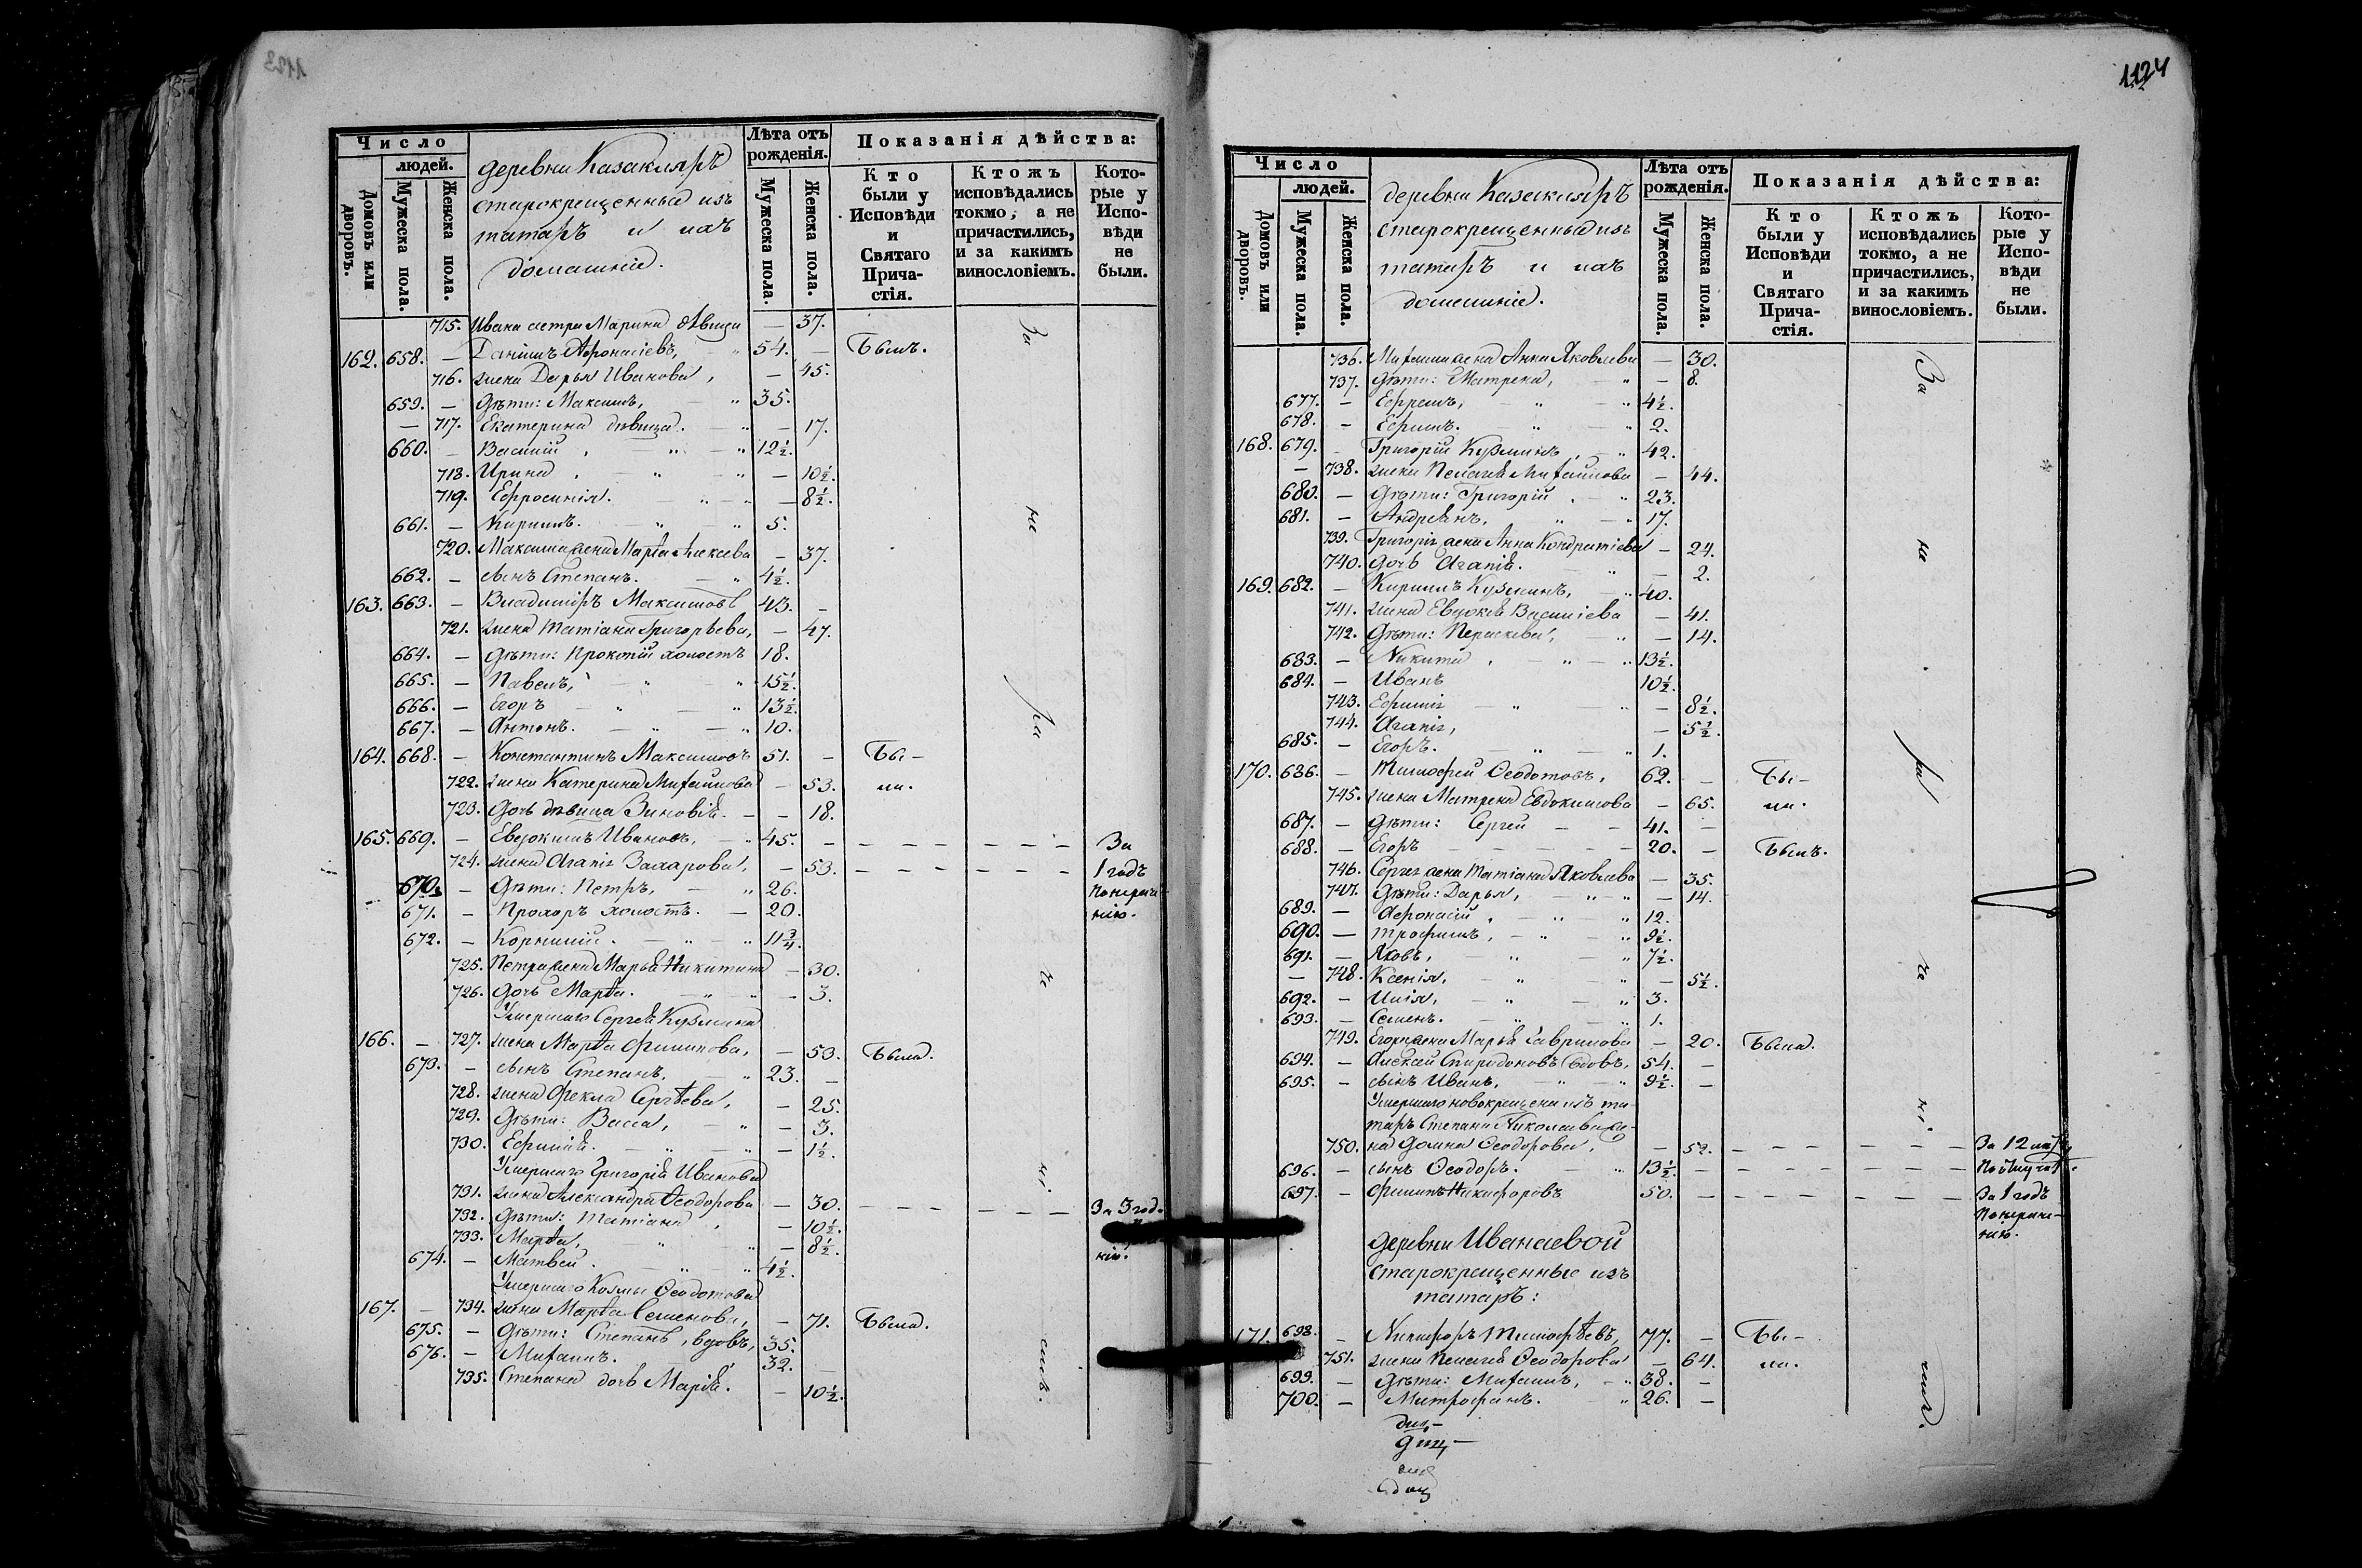 1123
Число
людей.
Домовъ или дворовъ.
Мужеска пола.
Женска пола.
деревни Казакляръ
старокрещенныя изъ
татаръ и ихъ
домашніе.
Лѣта отъ рожденія.
Мужеска пола.
Женска пола.
Показанія дѣйства:
Кто были у Исповѣди и Святаго Прича-стія.
Ктожъ исповѣдались токмо, а не причастились, и за какимъ винословіемъ.
Кото-рые у Испо-вѣди не были.
715. Ивана сестра Марина дѣвица — 37.
162. 658. — Даніилъ Афонасіевъ, „ 54. — Былъ.
716. жена Дарья Иванова, — 45.
659. — Дѣти: Максимъ, — „ 35.
— 717. Екатерина дѣвица. — „ — 17.
660. — Василій, — „ — „ 12½.
718. Ирина, „ „ — 10½.
719. Ефросинія. — „ — — 8½.
661. — Кирилъ. „ „ 5.
720. Максима жена Марѳа Алексѣева — 37.
662. — сынъ Степанъ. — „ 4½.
163. 663. — Владиміръ Максимовъ 43. —
721. жена Татіана Григорьева, — 47.
664. — Дѣти: Прокопій холостъ 18.
665. — Павелъ, — „ „ 15½.
666. — Егоръ — „ — „ 13½.
667. — Антонъ. — „ — „ 10.
164. 668. — Константинъ Максимовъ 51. — Бы-
722. жена Катерина Михайлова — 53. ли.
723. Дочь дѣвица Зиновія. — — 18.
165. 669. — Евдокимъ Ивановъ, — „ 45. — — — — — — — За
724. жена Агапія Захарова, — 53. — — — — — — 1 годъ
670. — Дѣти: Петръ, — „ 26. по нераче-
671. — Прохоръ холостъ. — 20. нію.
672. — Корнилій. — „ — „ 11¾.
725. Петра жена Марья Никитина — 30.
726. Дочь Марѳа. — „ — — 3.
Умершаго Сергѣя Кузмина
166. — 727. жена Марѳа Филипова, — 53. Была.
673. — сынъ Степанъ, — „ 23. —
728. жена Фекла Сергѣева, — 25.
729. Дѣти: Васса, — „ — 3.
730. Ефимія. — „ — „ — 1½.
Умершаго Григорія Иванова
731. жена Александра Ѳеодорова — 30. — — — — — — За 3 год.
732. Дѣти: Татіана, — 10½.
733. Марѳа, „ — 8½.
674. — Матвей. — „ „ 4½. нію.
Умершаго Козмы Ѳеодотова
167. — 734. жена Марѳа Семенова, — 71. Была.
675. — Дѣти: Степанъ, вдовъ, 35.
676. — Михаилъ. 32.
735. Степана дочь Марія. — 10½.
За не ра че ні емъ.
1124
Число
людей.
Домовъ или дворовъ.
Мужеска пола.
Женска пола.
деревни Казакляръ
старокрещенныя изъ
татаръ и ихъ
домашніе.
Лѣта отъ рожденія.
Мужеска пола.
Женска пола.
Показанія дѣйства:
Кто были у Исповѣди и Святаго Прича-стія.
Ктожъ исповѣдались токмо, а не причастились, и за какимъ винословіемъ.
Кото-рые у Испо-вѣди не были.
736. Михаила жена Анна Яковлева — 30.
737. Дѣти: Матрена, — „ — 8.
677. — Ефремъ, — „ — „ 4½.
678. — Ефимъ. — „ „ 2.
168. 679. Григорій Кузминъ, „ 42.
— 738. жена Пелагія Михайлова — 44.
680. — Дѣти: Григорій. — „ 23.
681. — Андреянъ, „ — „ 17.
739. Григорія жена Анна Кондратіева — 24.
740. дочь Агапія. — „ — 2.
169. 682. — Кирилъ Кузминъ, „ 40.
741. жена Евдокія Васильева — 41.
742. Дѣти: Параскева, „ — 14.
683. — Никита, — „ — „ 13½.
684. — Иванъ 10½.
743. Ефимія — „ — „ — 8½.
744. Агапія, — 5½.
685. — Егоръ. — „ — „ 1.
170. 686. — Тимофей Ѳеодотовъ, 62. — Бы-
745. жена Матрена Евдокимова — 65. ли.
687. — Дѣти: Сергей — — 41. —
688. — Егоръ — — — — 20. — Былъ.
746. Сергея жена Татіана Яковлева — 35.
747. Дѣти: Дарья, — „ — „ — 14.
689. — Афонасій, — „ — „ 12.
690. — Трофимъ, — „ — „ 9½.
691. — Яковъ, — „ — „ 7½.
— 748. Ксенія, — „ — „ — 5½.
692. — Илія, — „ — „ 3.
693. — Семенъ. — „ — „ 1.
749. Егора жена Марья Гаврилова — 20. Была.
694. — Алексей Спиридоновъ вдовъ, 54. —
695. — сынъ Иванъ, — „ — „ 9½. —
Умершаго новокрещена изъ та-
таръ Степана Николаева же-
750. на Домна Ѳеодорова, — 52. — — — — — — За 12
696. — сынъ Ѳеодоръ. — „ 13½. — — — — — — —
697. — Филипъ Никифоровъ 50. — — — — — — — За 1 годъ
по нераче-
нію.
деревни Иванаевой
старокрещенные изъ
татаръ:
171. 698. — Никифоръ Тимофѣевъ, 77. — Бы-
751. жена Пелагія Ѳеодорова — 64. ли.
699. — Дѣти: Михаилъ, — „ 38. —
700. — Митрофанъ. „ 26. —
За не ра че ні емъ.